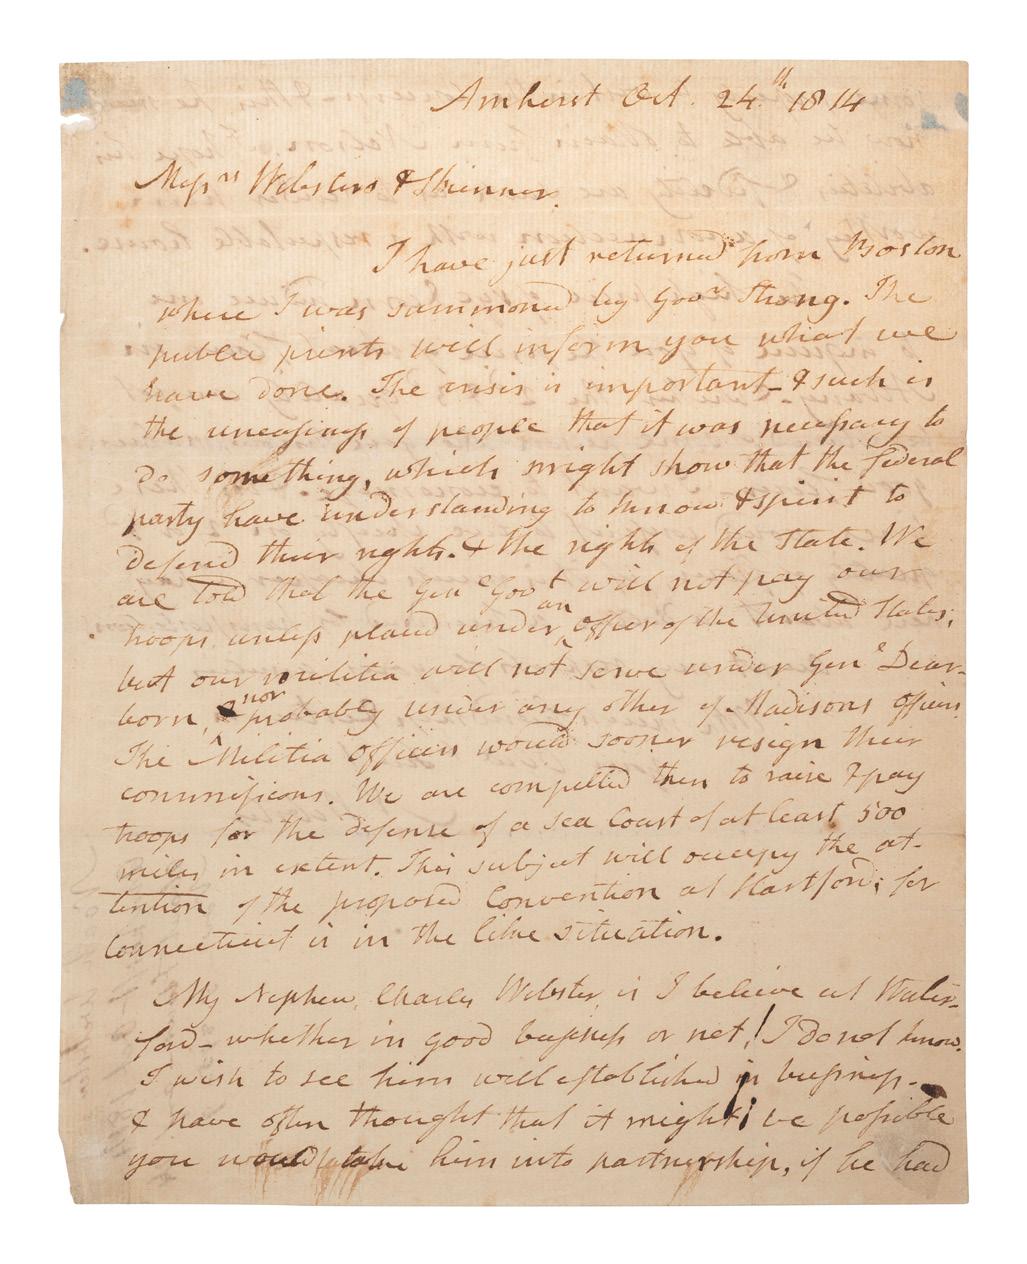 Amherst Oct. 24.th 1814
Messrs Websters & Skinner.
I have just returned from Boston
where I was summoned by Govr Strong. The
public prints will inform you what we
have done. The crisis is important - & such is
the uneasiness of people that it was necessary to
do something, which might show that the federal
party have understanding to know & spirit to
defend their rights. & the rights of the State. We
are told that the Genl Govt will not pay our
troops unless placed under an officer of the United States;
but our militia will not serve under Genl Dear-
born, & nor probably under any other of Madisons officers
The Militia officers would sooner resign their
commissions. We are compelled then to raise & pay
troops for the defense of a sea Coast of at least 500
miles in extent. This subject will occupy the at-
tention of the proposed Convention at Hartford; for
Connecticut is in the like situation.
My Nephew, Charles Webster, is I believe at Water-
ford - whether in good business or not! I do not know.
I wish to see him well established in business -
& have often thought that it might be possible
you would take him into partnership, if he had